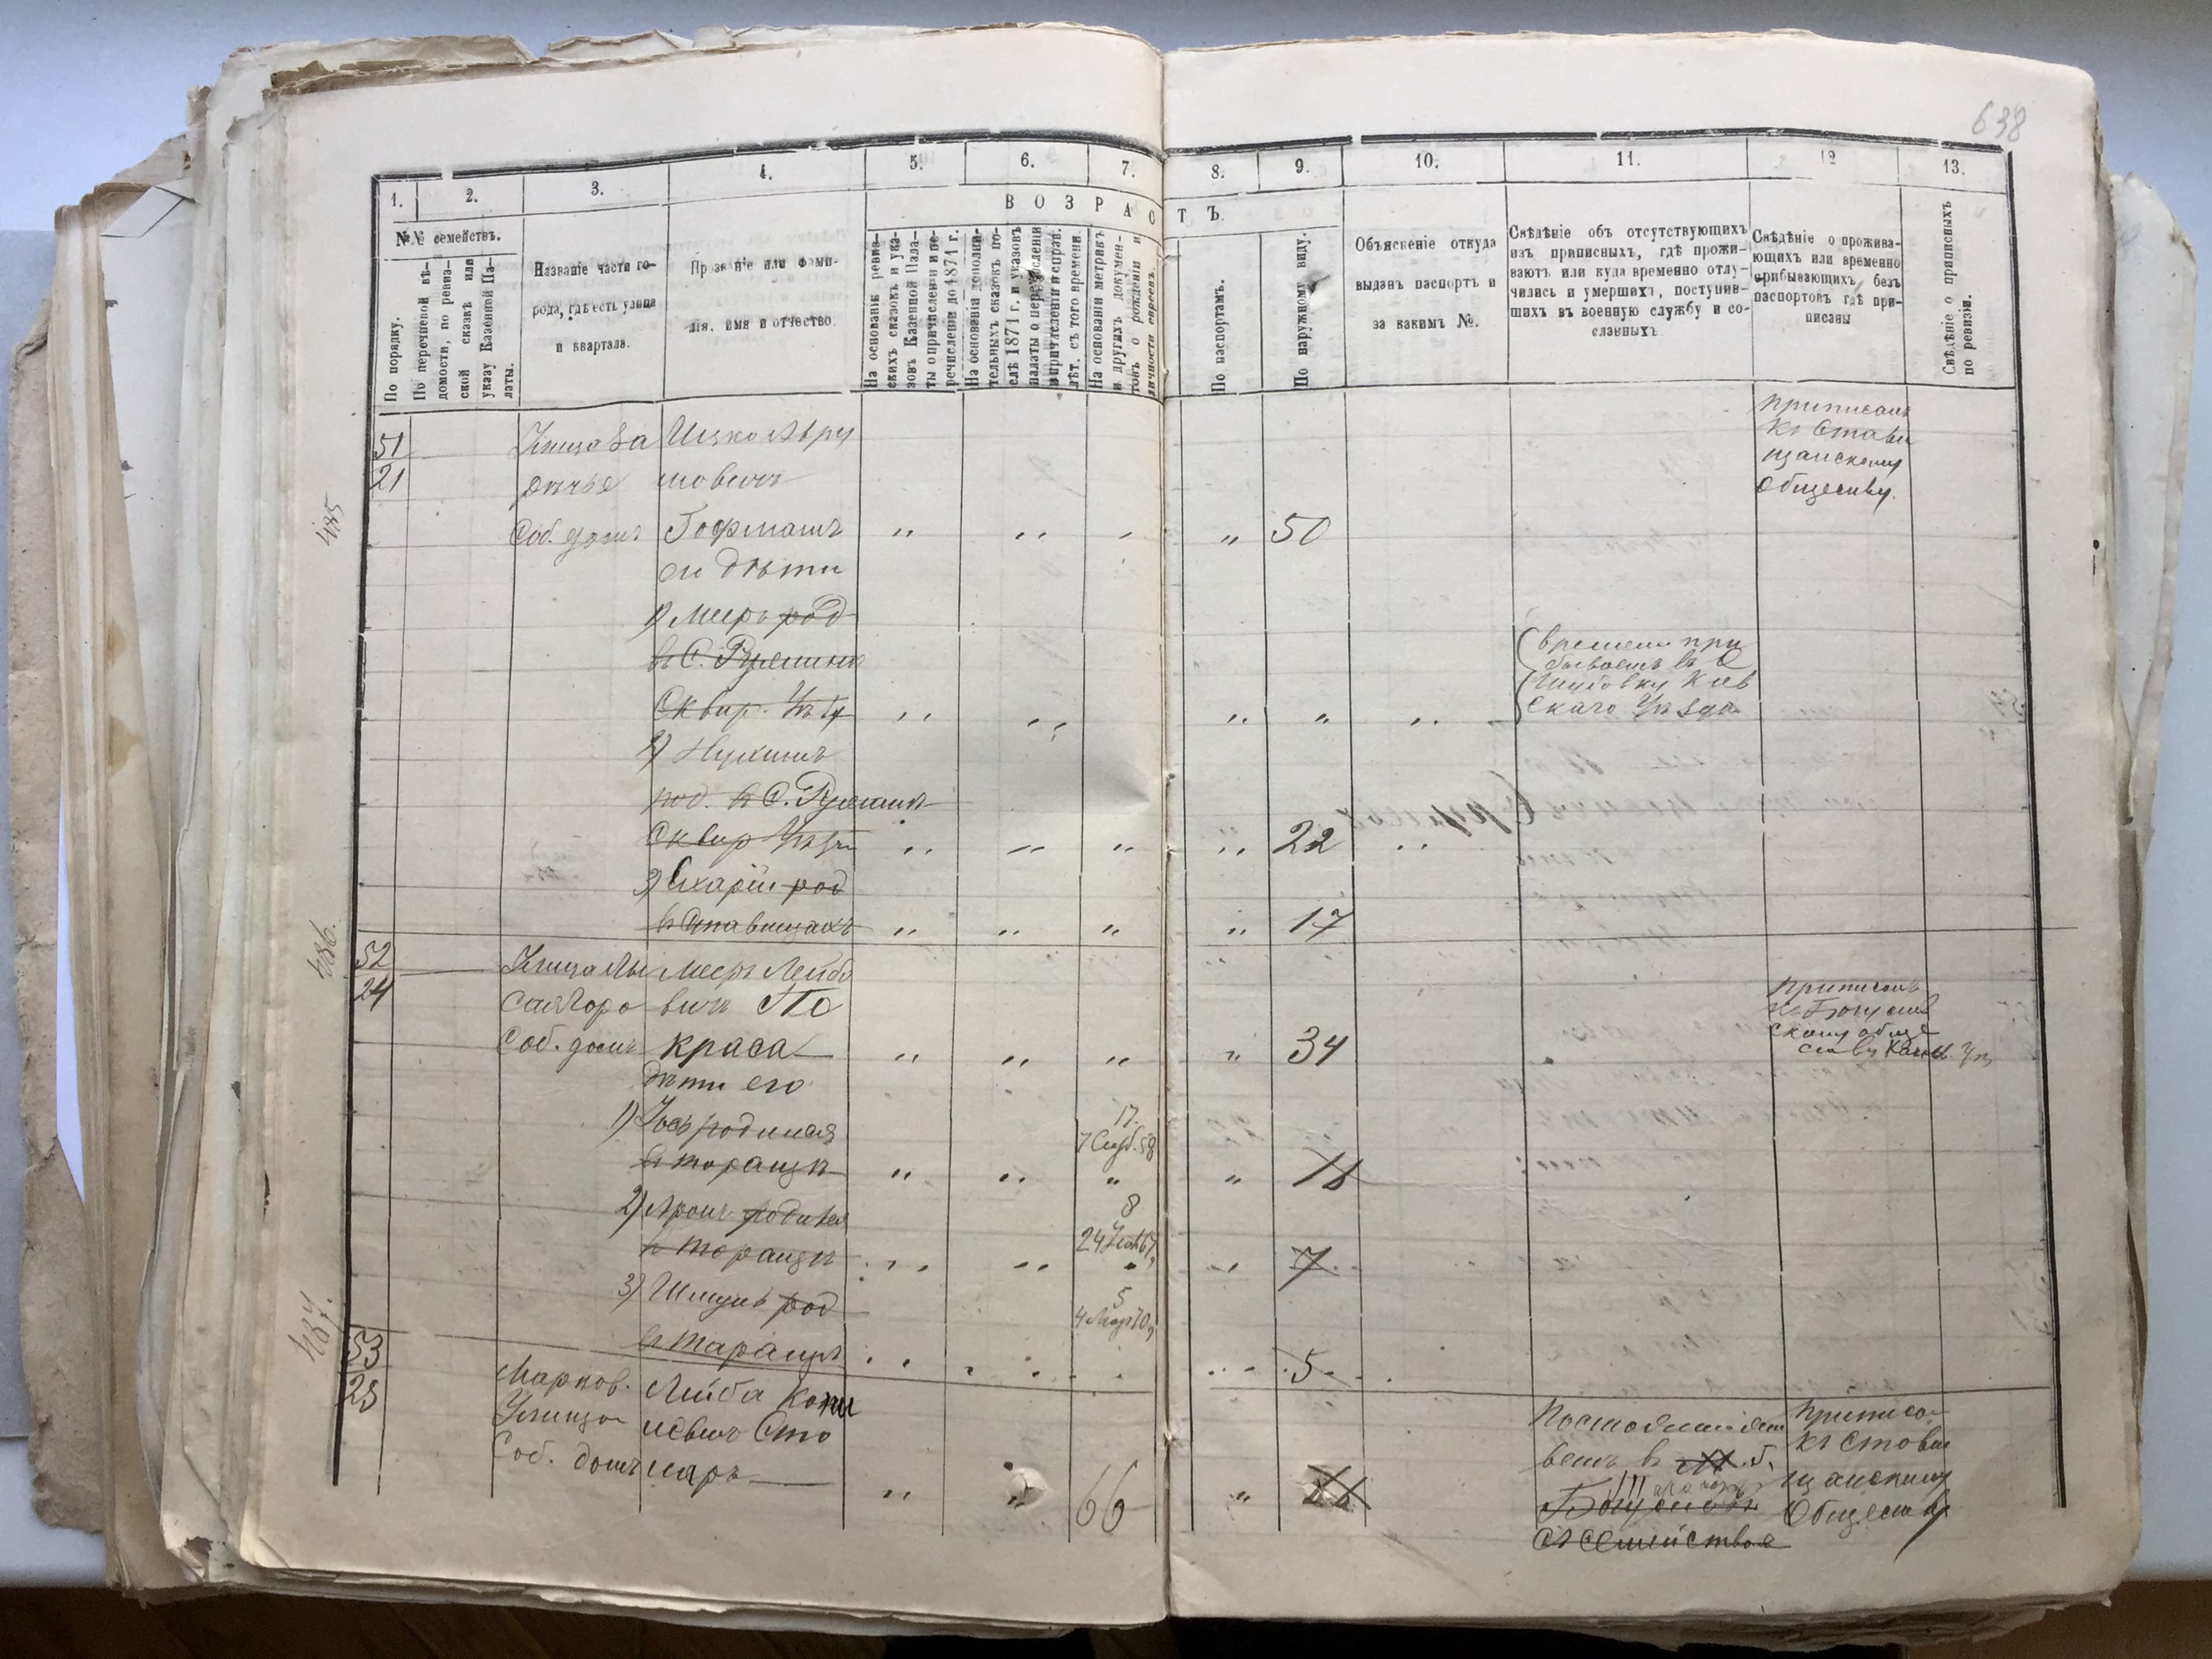 638
1. 2. 3. 4. 5. 6. 7. 8. 9. 10. 11. 12 13.
ВОЗРАСТЪ
№№ семействъ.
По порядку.
По перечневой вѣ-
домости, по ревиз-
ской сказкѣ или
указу Казенной Па-
латы.
Названіе части го-
рода, гдѣ есть улица
и квартала.
Прозваніе или фами-
лія, имя и отчество
На основаніи ревиз-
скихъ сказокъ и ука-
зовъ Казенной Пала-
ты о причисленіи и пе-
речисленіи до 1871 г.
На основаніи дополни-
тельныхъ сказокъ по-
слѣ 1871 г. и указовъ
палаты о перечисленіи
и причисленіи и справ.
лѣт. съ того времени.
На основаніи метрикъ
и другихъ докумен-
товъ о рожденіи и
личности евреевъ.
По паспортамъ.
По наружному виду.
Объясненіе откуда
выданъ паспортъ и
за какимъ №.
Свѣдѣніе объ отсутствующихъ
изъ приписныхъ, гдѣ прожи-
ваютъ или куда временно отлу-
чились и умершихъ, поступив-
шихъ въ военную службу и со-
сланныхъ
Свѣдѣніе о прожива-
ющихъ или временно
прибывающихъ безъ
паспортовъ гдѣ при-
писаны
Свѣдѣніе о приписныхъ
по ревизіи.
485
51
21
Улица За
рѣчье
Соб. домъ
Ицко Авру
мовичъ
Гофманъ
" " " " 50
приписанъ
къ Стави
щанскому
Обществу.
его дѣти
1) Меер род
в С. Ружинѣ
Сквир. Уѣз
" " " " "
времени при
бываетъ в С
Шубовку Кіев
скаго Уѣзда
2) Нухимъ
род. в С. Ружинѣ
Сквир Уѣз
" " " " 22
3) род
в Ставищахъ
" " " " 17
486.
52
24
Улица Лы
сая гора
Соб. домъ
Меер Лейбо
вичъ По
краса
" " " " 34
приписанъ
к Богуслав
скому обще
ству Канев. Уѣз
дѣти его
1) Іось родился
в таращѣ
17.
7 58
" " " " 16
2) Арон родился
в таращѣ
8
24 67
" " 7
3) Шмуль род
в таращѣ
5
4 Март 70
5
487.
53
25
Марков.
Улица
Соб. домъ
Лейба
Сто
ляръ
" " 66 "
Постоянно жи
ветъ в
Богуславѣ
съ семейством
приписан
къ Стави
щанскому
Обществу